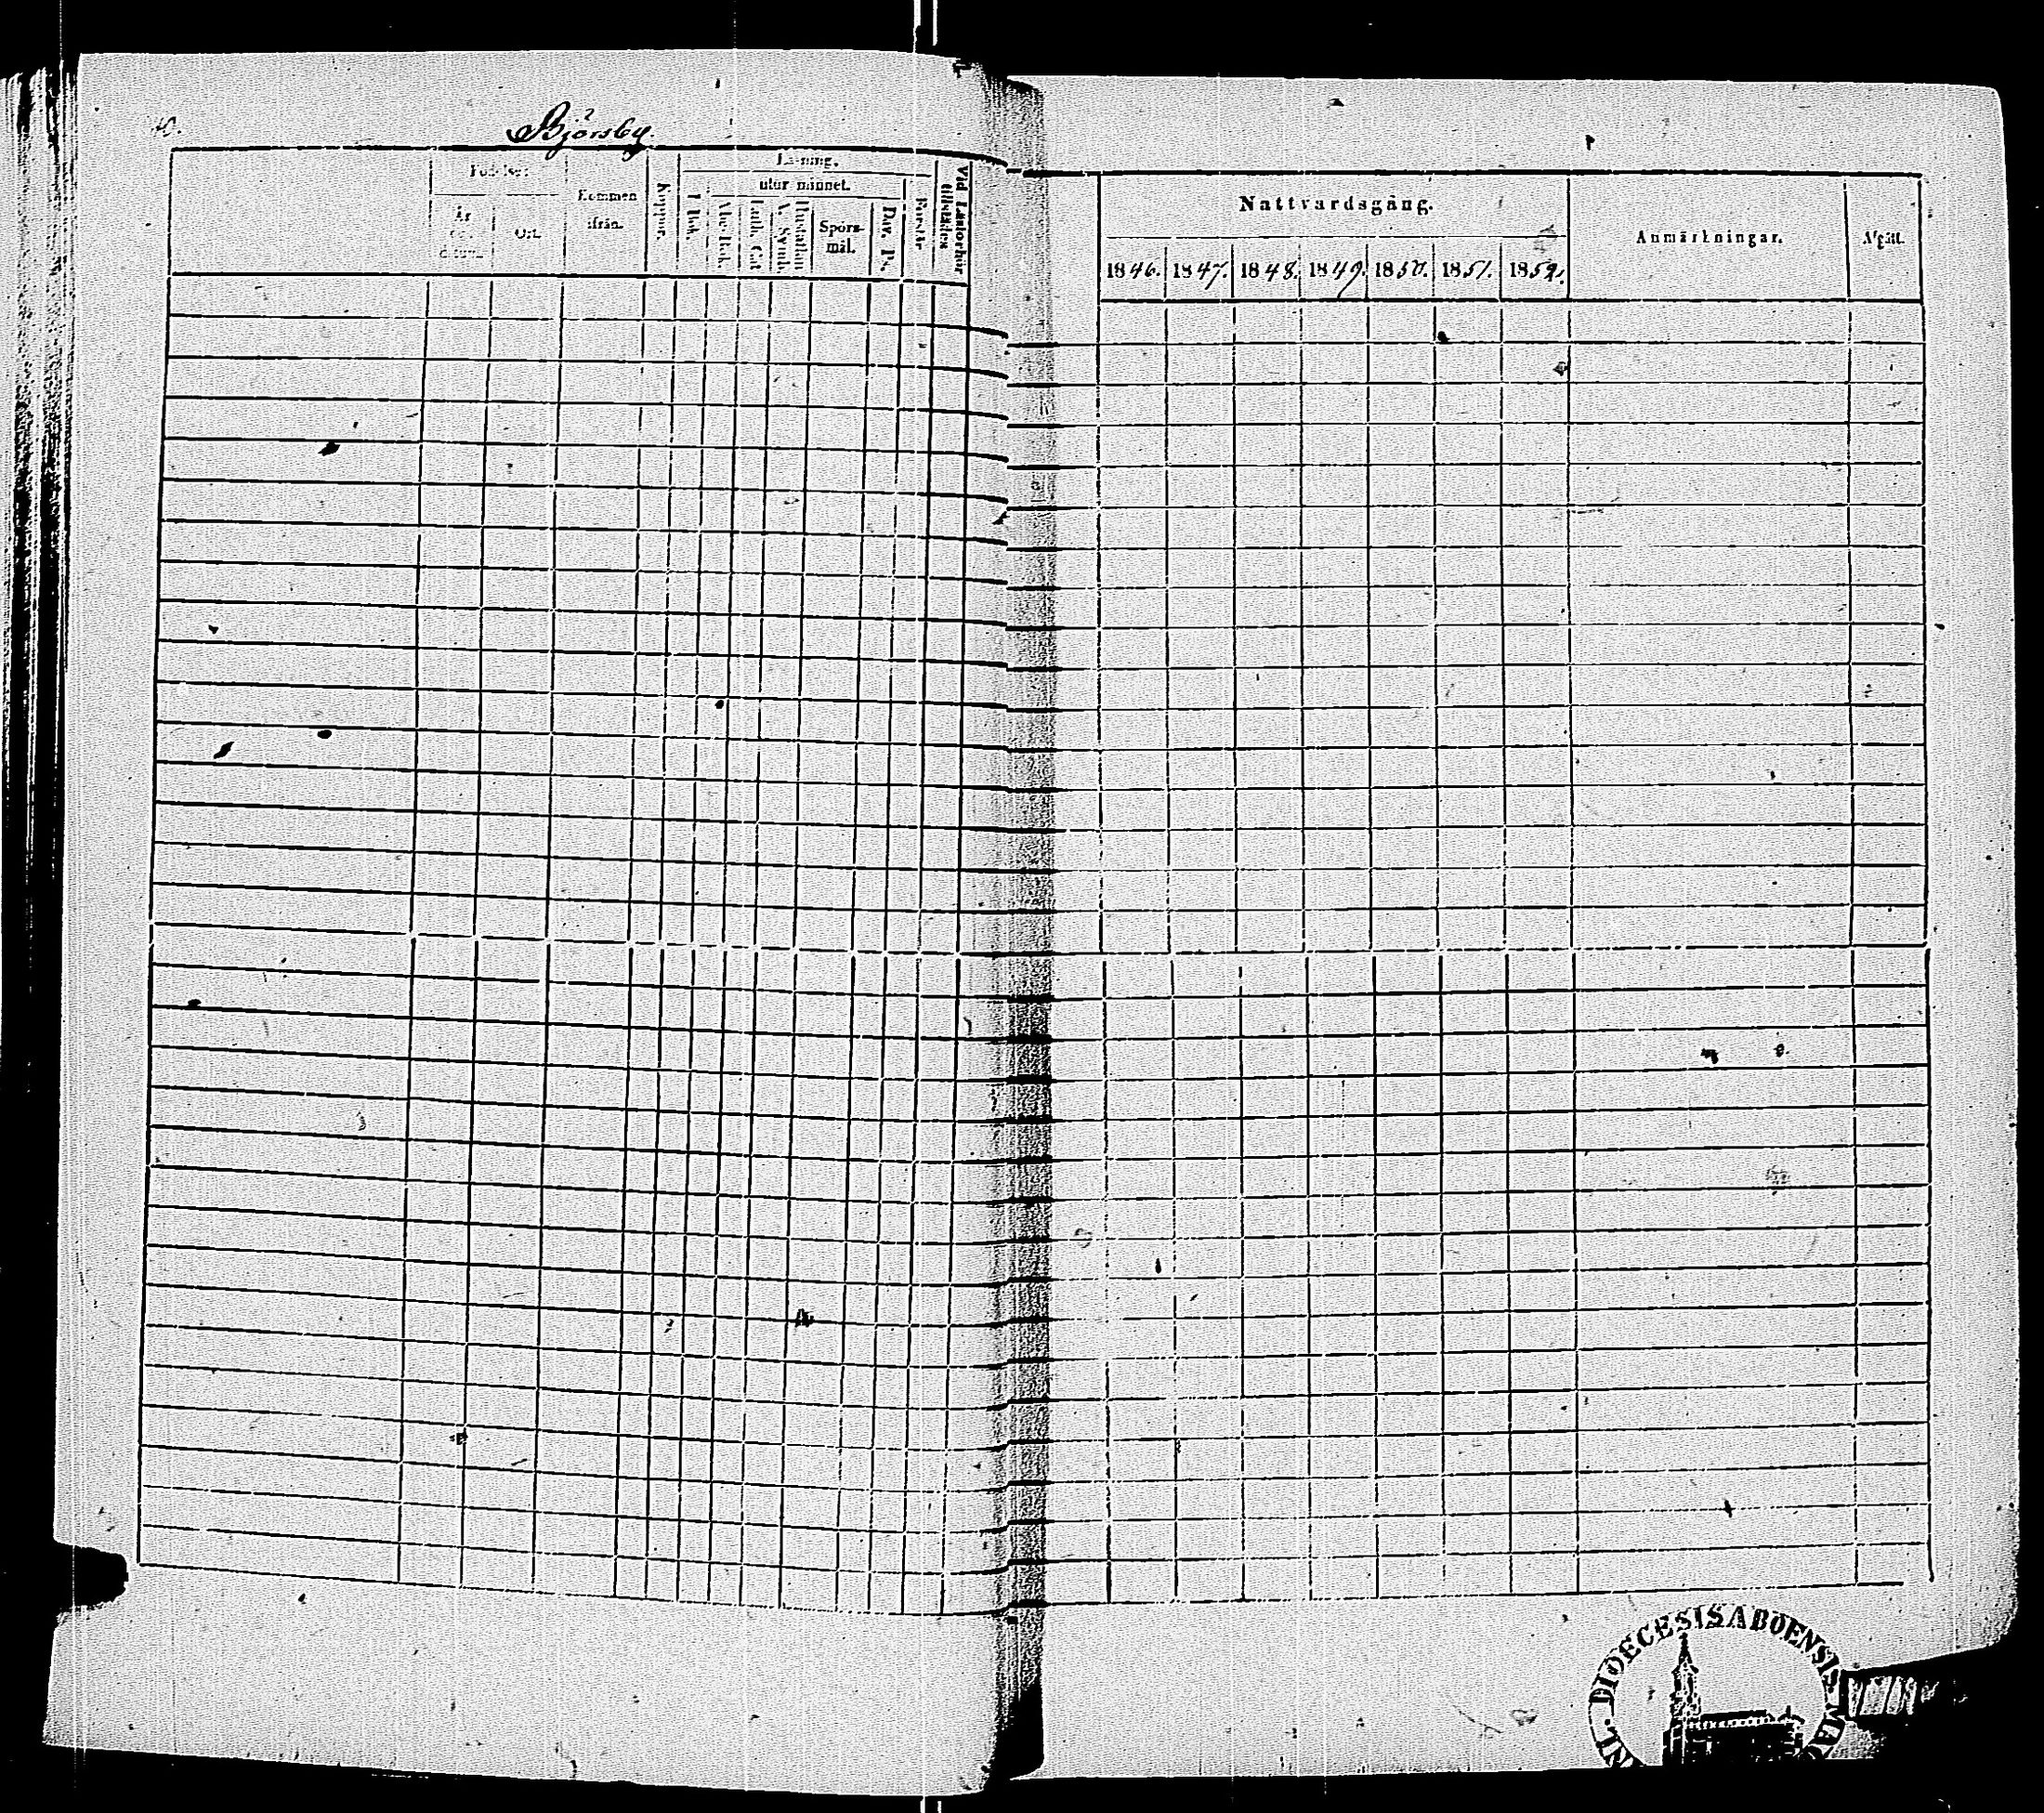 40.
Björsby.
Födelse:
Kommen ifrån.
Koppor.
Läsning.
utur minnet.
I Bok.
Abc Bok.
Luth. Cat.
Hustaflan A. Symb.
Spörs-mål.
Dav. Ps.
Förstår
Vid Läsförhör tillstädes
År och datum.
Ort.
Nattvardsgång.
Anmärkningar.
Afgått.
1846. 1847. 1848. 1849. 1850. 1851. 1852.
DIOECESIS ABOENSIS